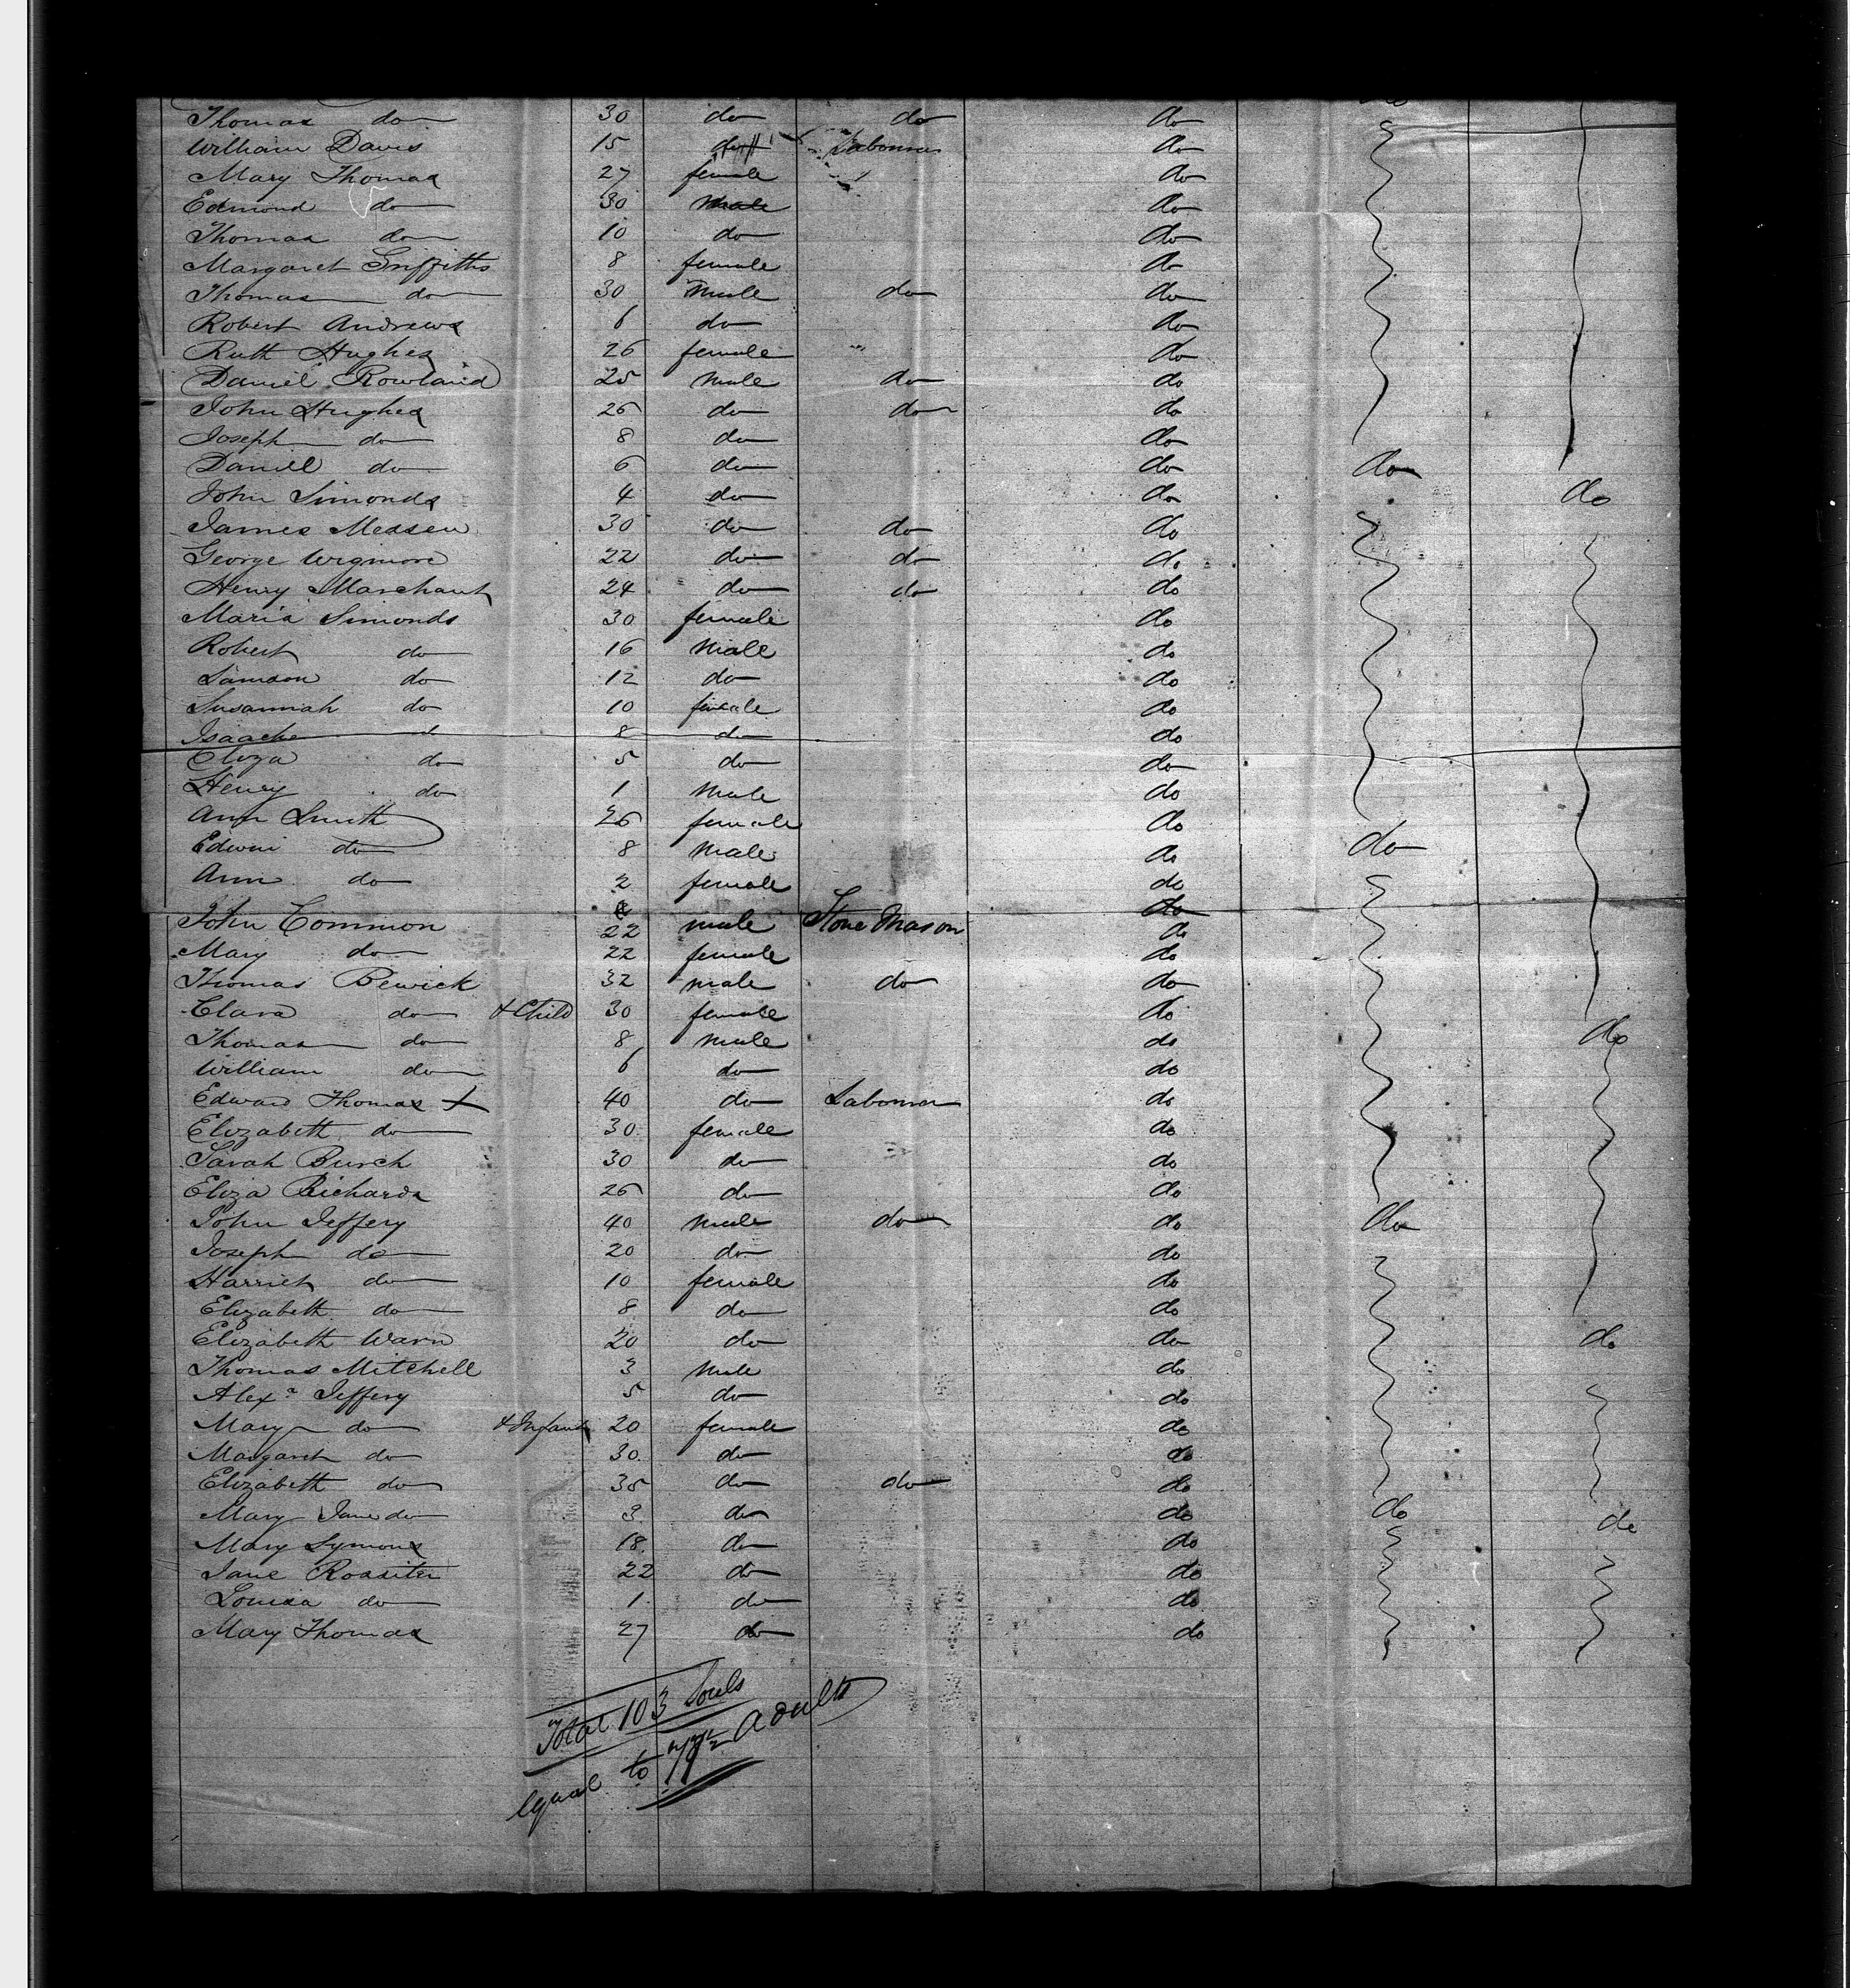 Thomas do 30 do do do
William Davis 15 do Labourer do
Mary Thomas 27 female do
Edmond do 30 male do
Thomas do 10 do do
Margaret Griffiths 8 female do
Thomas do 30 male do do
Robert Andrews 6 do do
Ruth Hughes 26 female " do
Daniel Rowland 25 male do do
John Hughes 26 do do do
Joseph do 8 do do
Daniel do 6 do do do
John Simonds 4 do do do
James Measen 30 do do do
George Wigmore 22 do do do
Henry Marchant 24 do do do
Maria Simonds 30 female do
Robert do 16 male do
Samson do 12 do do
Susannah do 10 female do
Isaac do 8 do do
Eliza do 5 do do
Henry do 1 male do
Ann Smith 26 female do
Edwin do 8 male do do
Ann do 2 female do
do
John Common 22 male Stone Mason do
Mary do 22 female do
Thomas Bewick 32 male do do
Clara do & Child 30 female do
Thomas do 8 male do do
William do 6 do do
Edward Thomas + 40 do Labourer do
Elizabeth do 30 female do
Sarah Burch 30 do do
Eliza Richards 26 do do
John Jeffery 40 male do do do
Joseph do 20 do do
Harriet do 10 female do
Elizabeth do 8 do do
Elizabeth Warn 20 do do do
Thomas Mitchell 3 male do
Alexr Jeffery 5 do do
Mary do & Infant 20 female do
Margaret do 30 do do
Elizabeth do 35 do do do
Mary Jane do 3 do do do do
Mary Symons 18 do do
Jane Rossiter 22 do do
Louisa do 1 do do
Mary Thomas 27 do do
Total 103 Souls
Equal to Adults